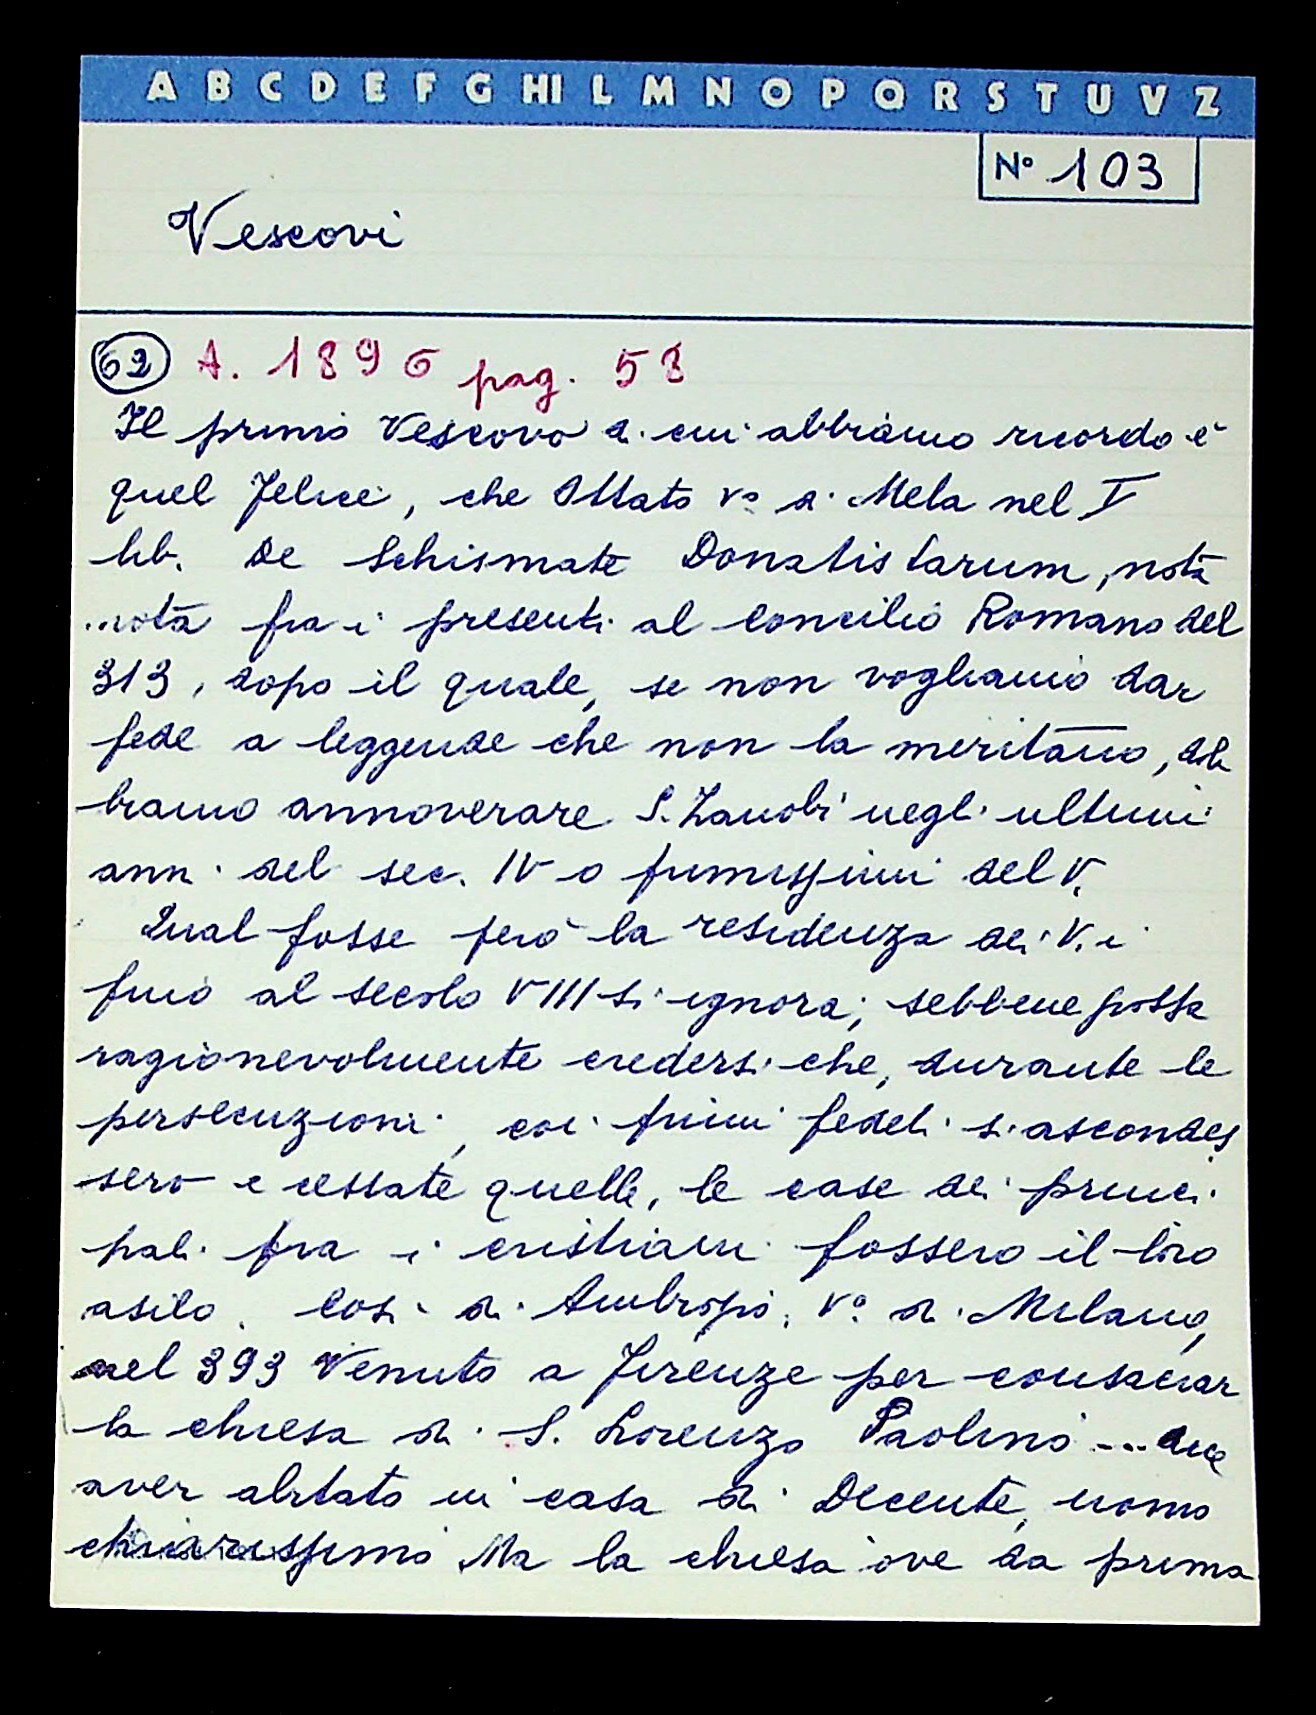 A B C D E F G HI L M N O P Q R S T U V Z
Nº 103
Vescovi
62 A. 1896 pag. 58
Il primo Vescovo di cui abbiamo ricordo è
quel Felice, che Ottato Vº di Mela nel V
lib. De Schismate Donatistarum, nota
nota fra i presenti al Concilio Romano del
313, dopo il quale, se non vogliamo dar
fede a leggende che non la meritano, dob
biamo annoverare S. Zanobi negli ultimi
anni del sec. IV o primissimi del V.
Qual fosse però la residenza dei V.i
fino al secolo VIII si ignora; sebbene possa
ragionevolmente credersi che, durante le
persecuzioni, coi primi fedeli si ascondes
sero e cessate quelle, le case dei princi
pali fra i cristiani fossero il loro
asilo. Così di Ambrogio, Vº di Milano,
nel 393 venuto a Firenze per consacrar
la chiesa di S. Lorenzo Paolino ... dice
aver abitato in casa di Decente, uomo
chiarissimo Ma la chiesa ove da prima